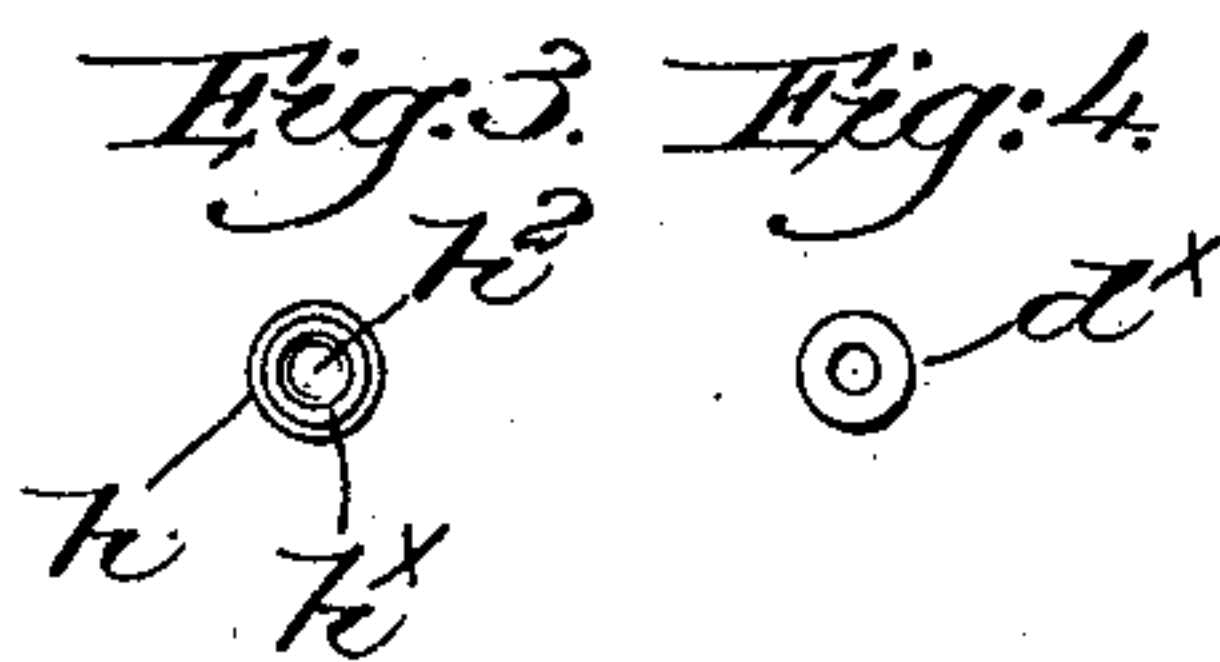 Fig. 3.
Fig. 4.
h²
dˣ
h
hˣ